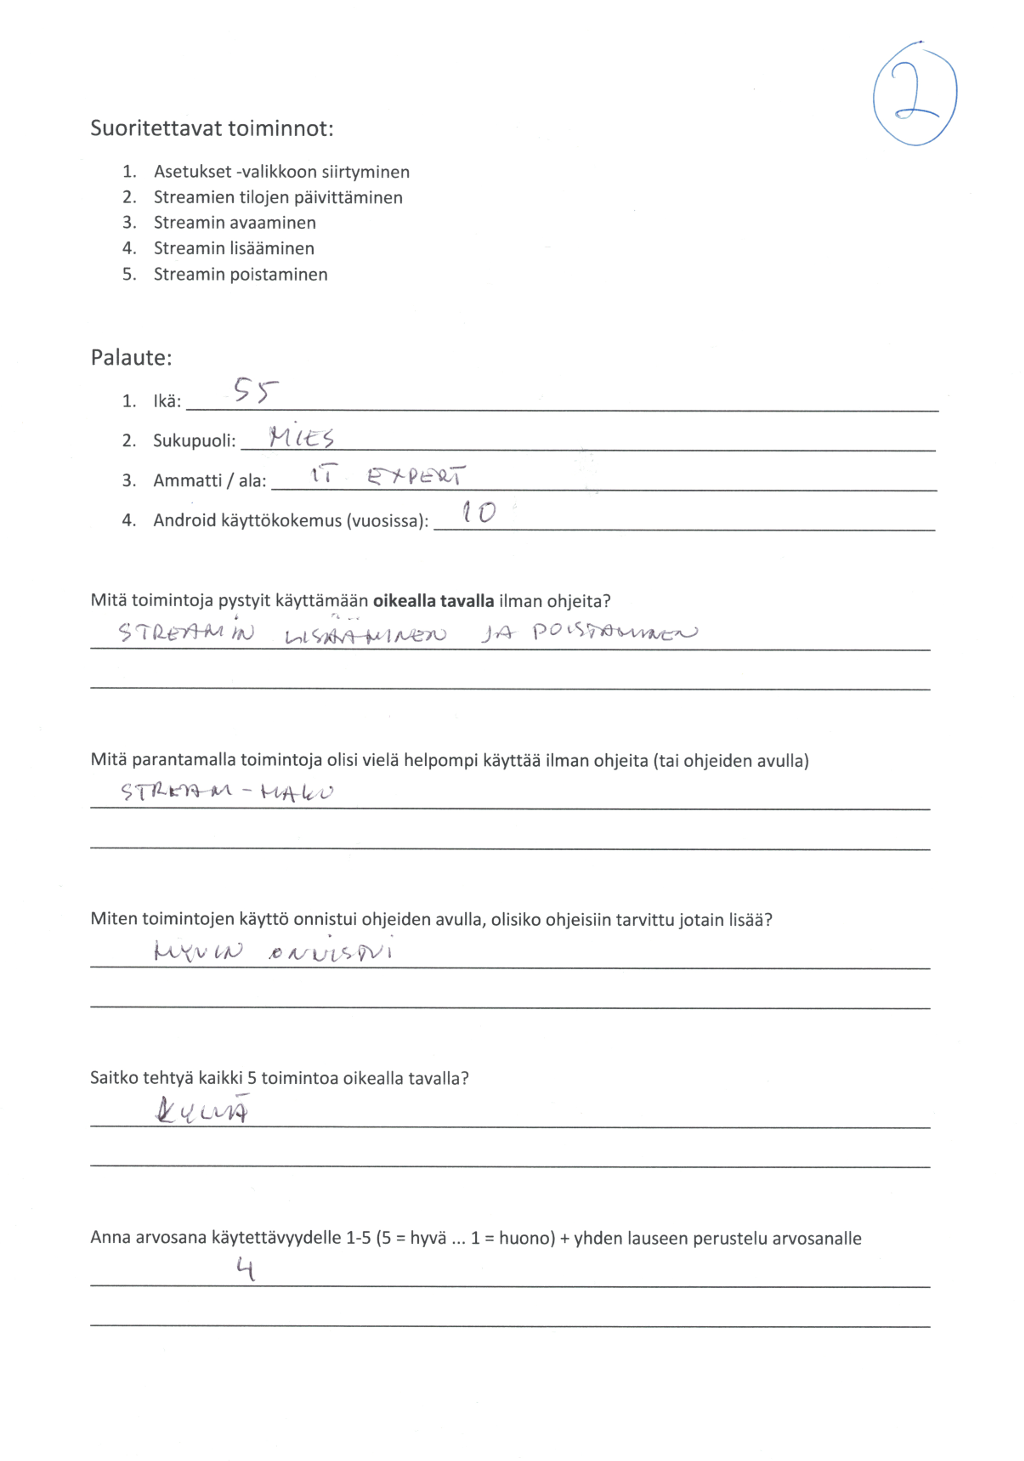 2
Suoritettavat toiminnot:
1. Asetukset -valikkoon siirtyminen
2. Streamien tilojen päivittäminen
3. Streamin avaaminen
4. Streamin lisääminen
5. Streamin poistaminen
Palaute:
1. Ikä: 55
2. Sukupuoli: MIES
3. Ammatti / ala: IT EXPERT
4. Android käyttökokemus (vuosissa): 10
Mitä toimintoja pystyit käyttämään oikealla tavalla ilman ohjeita?
STREAMIN LISÄÄMINEN JA POISTAMINEN
Mitä parantamalla toimintoja olisi vielä helpompi käyttää ilman ohjeita (tai ohjeiden avulla)
STREAM-HAKU
Miten toimintojen käyttö onnistui ohjeiden avulla, olisiko ohjeisiin tarvittu jotain lisää?
HYVIN ONNISTUI
Saitko tehtyä kaikki 5 toimintoa oikealla tavalla?
KYLLÄ
Anna arvosana käytettävyydelle 1-5 (5 = hyvä ... 1 = huono) + yhden lauseen perustelu arvosanalle
4